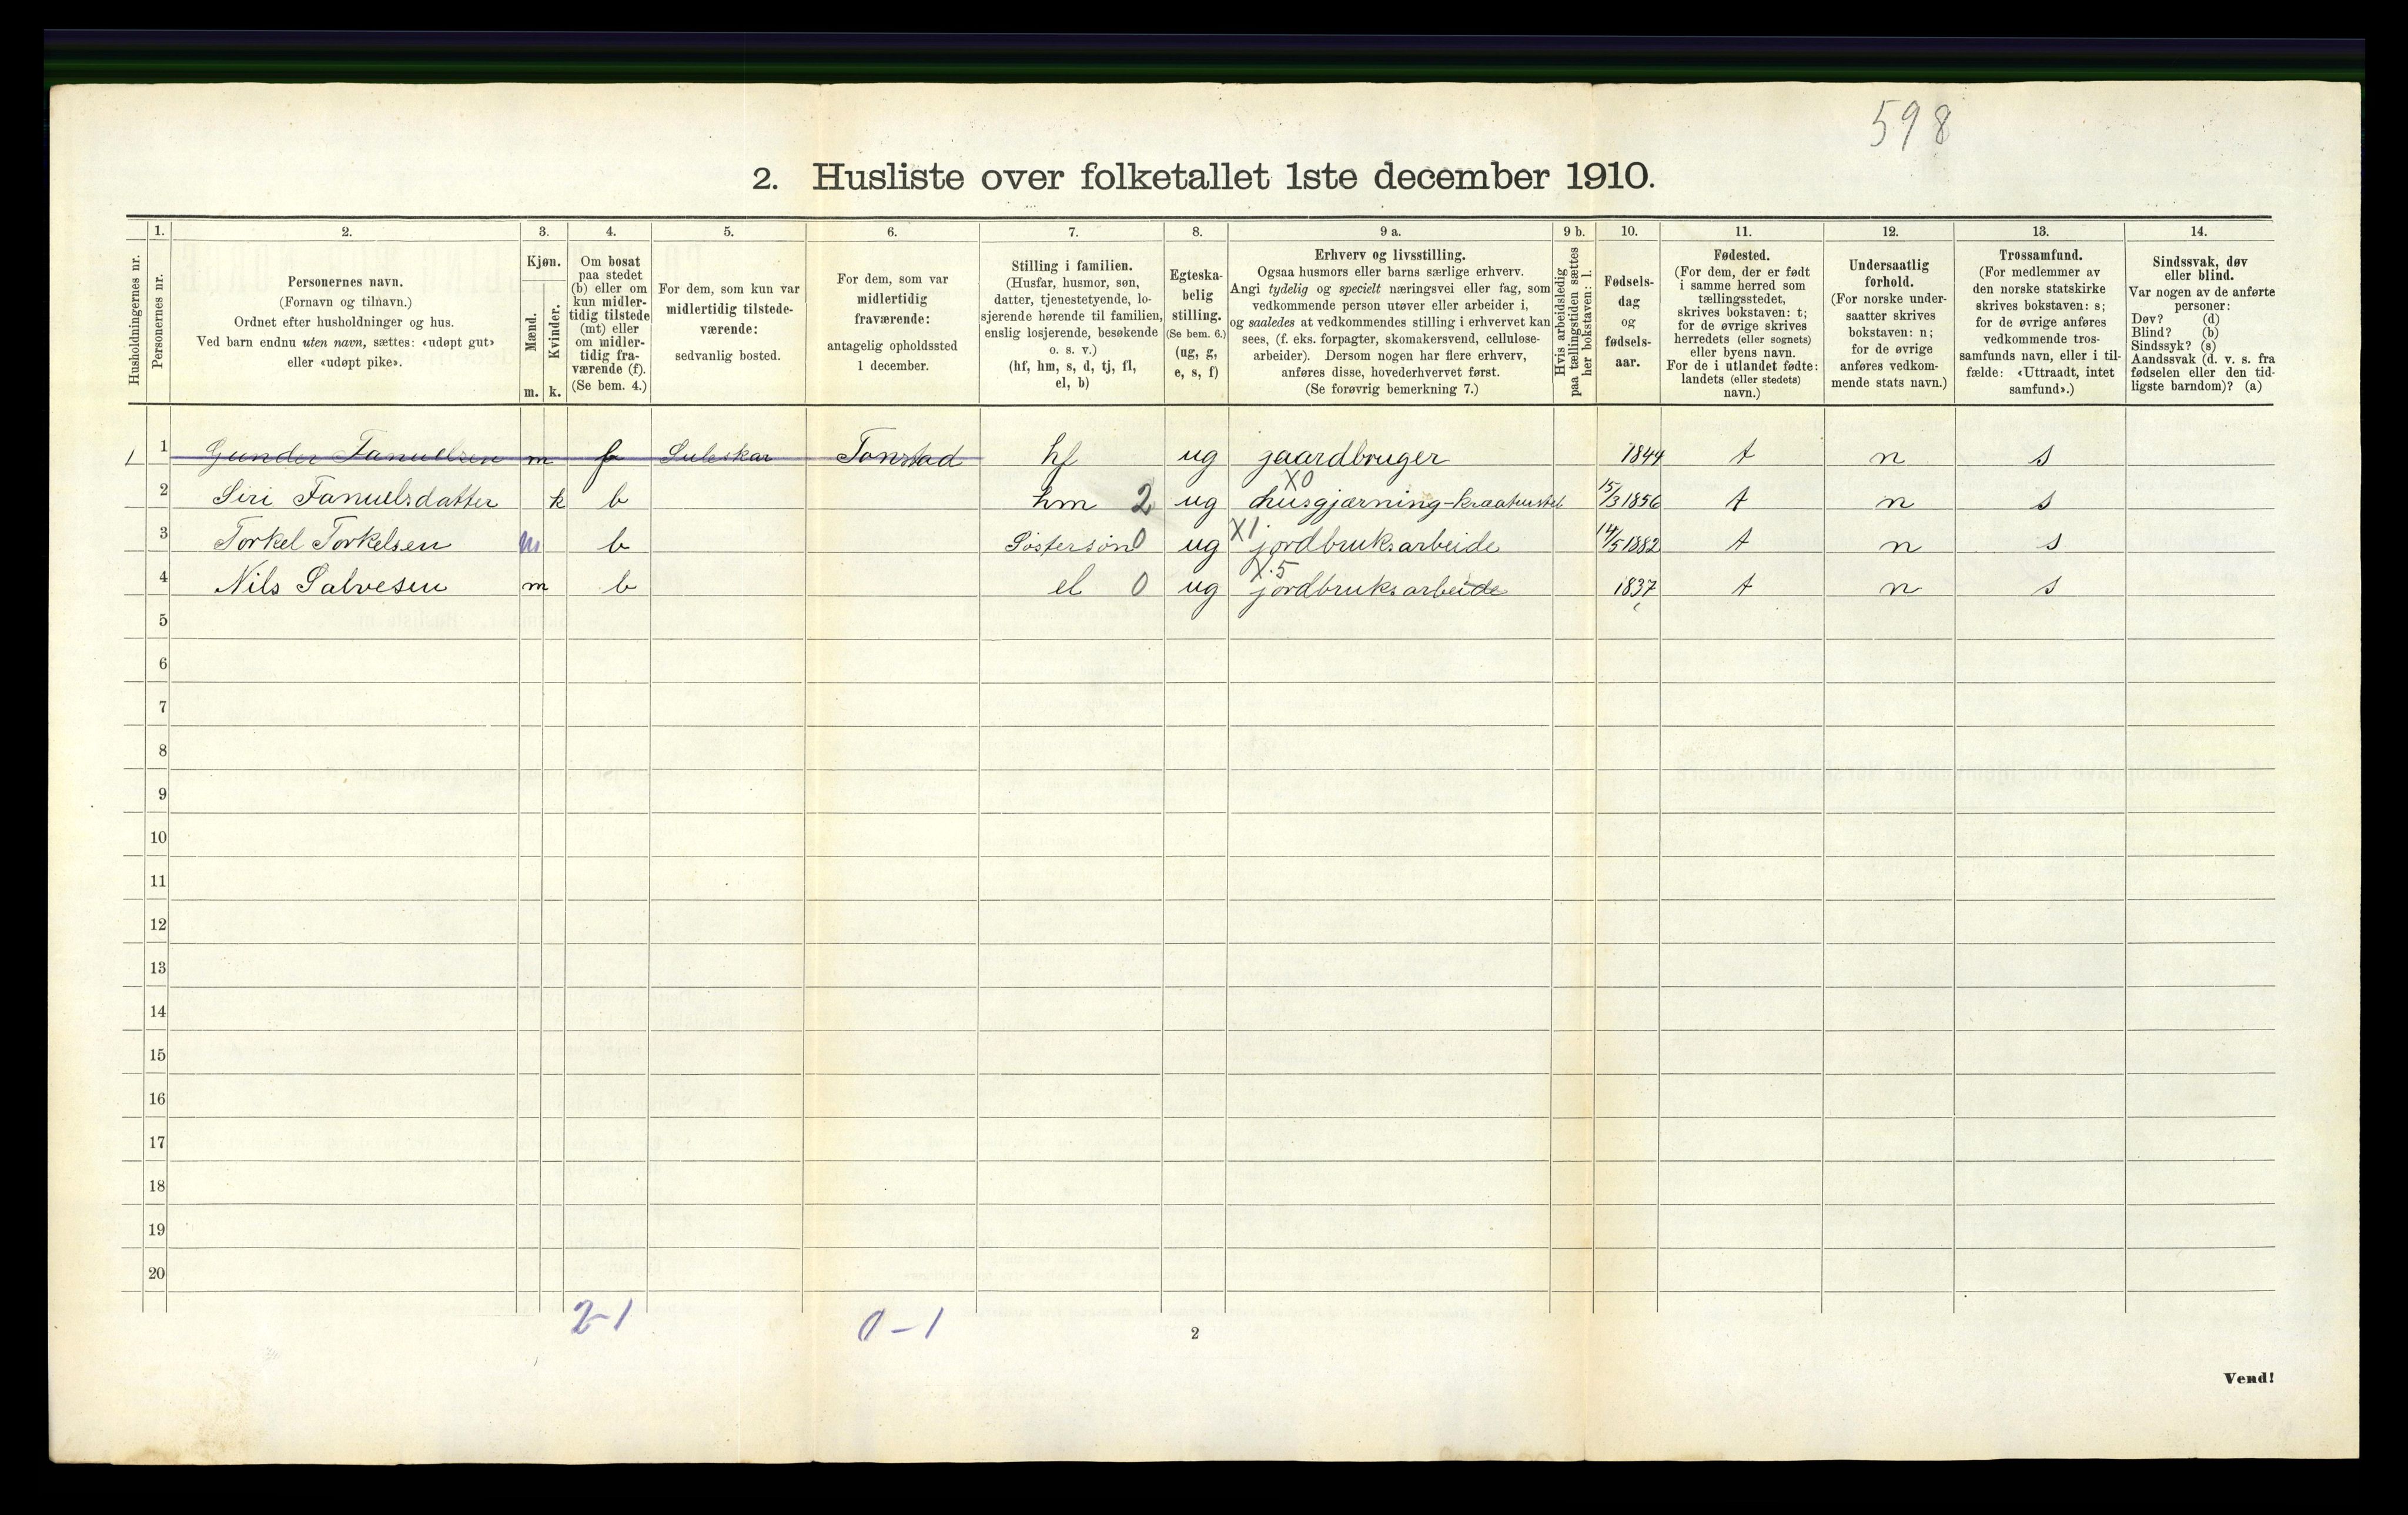 598
2. Husliste over folketallet 1ste december 1910.
Husholdningernes nr.
1.
Personernes nr.
2.
Personernes navn.
(Fornavn og tilnavn.)
Ordnet efter husholdninger og hus.
Ved barn endnu uten navn, sættes: «udøpt gut»
eller «udøpt pike».
3.
Kjøn.
Mænd.
Kvinder.
m. k.
4.
Om bosat
paa stedet
(b) eller om
kun midler-
tidig tilstede
(mt) eller
om midler-
tidig fra-
værende (f).
(Se bem. 4.)
5.
For dem, som kun var
midlertidig tilstede-
værende:
sedvanlig bosted.
6.
For dem, som var
midlertidig
fraværende:
antagelig opholdssted
1 december.
7.
Stilling i familien.
(Husfar, husmor, søn,
datter, tjenestetyende, lo-
sjerende hørende til familien,
enslig losjerende, besøkende
o. s. v.)
(hf, hm, s, d, tj, fl,
el, b)
8.
Egteska-
belig
stilling.
(Se bem. 6.)
(ug, g,
e, s, f)
9 a.
Erhverv og livsstilling.
Ogsaa husmors eller barns særlige erhverv.
Angi tydelig og specielt næringsvei eller fag, som
vedkommende person utøver eller arbeider i,
og saaledes at vedkommendes stilling i erhvervet kan
sees, (f. eks. forpagter, skomakersvend, cellulose-
arbeider). Dersom nogen har flere erhverv,
anføres disse, hovederhvervet først.
(Se forøvrig bemerkning 7.)
9 b.
Hvis arbeidsledig
paa tællingstiden sættes
her bokstaven: l.
10.
Fødsels-
dag
og
fødsels-
aar.
11.
Fødested.
(For dem, der er født
i samme herred som
tællingsstedet,
skrives bokstaven: t;
for de øvrige skrives
herredets (eller sognets)
eller byens navn.
For de i utlandet fødte:
landets (eller stedets)
navn.)
12.
Undersaatlig
forhold.
(For norske under-
saatter skrives
bokstaven: n;
for de øvrige
anføres vedkom-
mende stats navn.)
13.
Trossamfund.
(For medlemmer av
den norske statskirke
skrives bokstaven: s;
for de øvrige anføres
vedkommende tros-
samfunds navn, eller i til-
fælde: «Uttraadt, intet
samfund».)
14.
Sindssvak, døv
eller blind.
Var nogen av de anførte
personer:
Døv? (d)
Blind? (b)
Sindssyk? (s)
Aandssvak (d. v. s. fra
fødselen eller den tid-
ligste barndom)? (a)
1 1 Gunder Fanuelsen m f Suleskar Tonstad hf ug gaardbruger 1844 t n s
2 Siri Fanuelsdatter k b hm 2 ug X0 husgjærning-kreaturstel 15/3 1856 t n s
3 Torkel Torkelsen m b Søstersøn 0 ug X1 jordbruksarbeide 14/5 1882 t n s
4 Nils Salvesen m b el 0 ug X.5 jordbruksarbeide 1837 t n s
5
6
7
8
9
10
11
12
13
14
15
16
17
18
19
20
2-1 0-1
2
Vend!